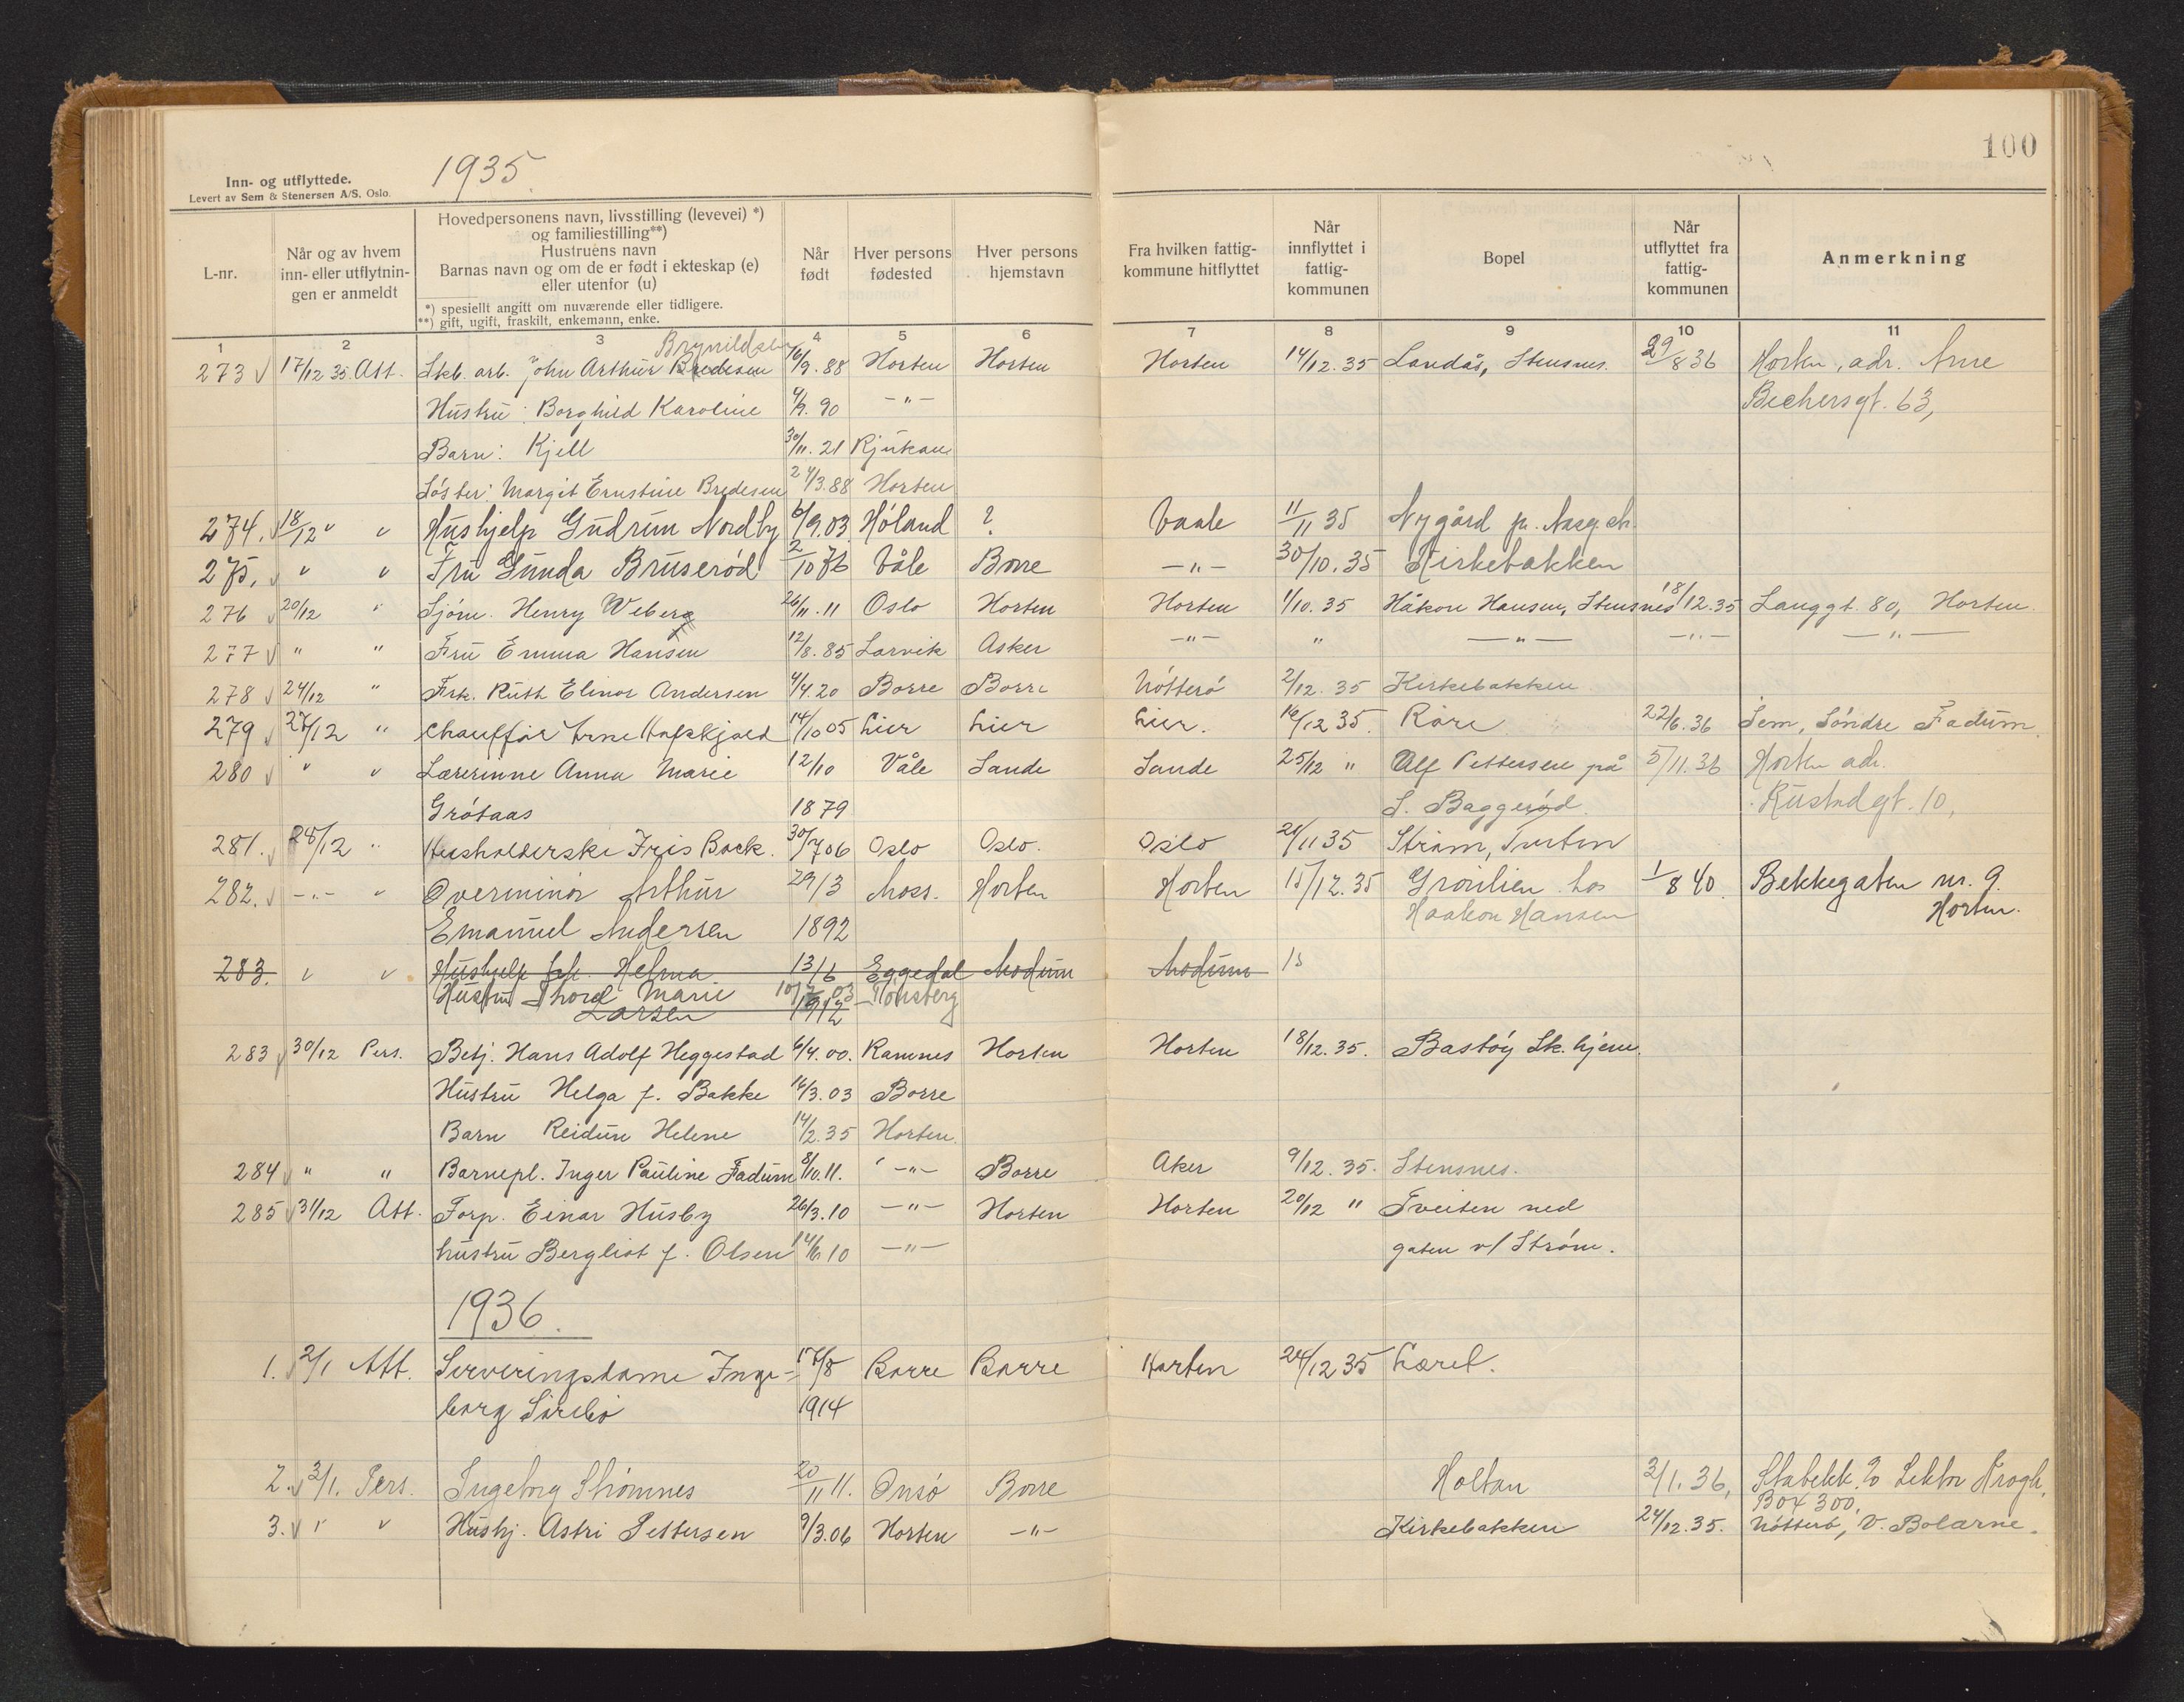 100
Inn- og utflyttede.
Levert av Sem & Stenersen A/S, Oslo.
1935.
L-nr.
Når og av hvem inn- eller utflytnin- gen er anmeldt
Hovedpersonens navn, livsstilling (levevei) *)
og familiestilling**)
Hustruens navn
Barnas navn og om de er født i ekteskap (e)
eller utenfor (u)
*) spesiellt angitt om nuværende eller tidligere.
**) gift, ugift, fraskilt, enkemann, enke.
Når født
Hver persons fødested
Hver persons hjemstavn
Fra hvilken fattig- kommune hitflyttet
Når innflyttet i fattig- kommunen
Bopel
Når utflyttet fra fattig- kommunen
Anmerkning
1 2 3 4 5 6 7 8 9 10 11
Brynildsen
273 17/12 35 Att. Skb. arb. John Arthur Bredesen 16/9.88 Horten Horten Horten 14/12.35 Landås, Stensnes. 29/8 36 Horten, adr. Arne
Hustru: Borghild Karoline 9/9.90 -"- Bechersgt. 63,
Barn: Kjell 30/11.21 Rjukan
Søster: Margit Ernstine Bredesen 24/3.88 Horten
274. 18/12 " " Hushjelp Gudrun Nordby 6/9.03 Høland ? Vaale 11/11 35 Nygård p.
275. " " Fru Gunda Bruserød 2/10 76 Våle Borre -"- 30/10.35 Kirkebakken
276 20/12 " Sjøm. Henry Weberg 26/11.11 Oslo Horten Horten 1/10.35 Håkon Hansen, Stensnes 18/12.35 Langgt. 80, Horten.
277 " " Fru Emma Hansen 12/8.85 Larvik Asker -"- " -"- -"- -"-
278 24/12 " Frk. Ruth Elinor Andersen 4/4.20 Borre Borre Nøtterø 2/12.35 Kirkebakken
279 27/12 " Chauffør Arne Hafskjold 14/10 05 Lier Lier Lier. 16/12 35. Røre 22/6.36 Sem, Søndre Fadum.
280 " " Lærerinne Anna Marie 12/10 Våle Sande Sande 25/12 " Alf Pettersen på 5/11.36 Horten adr.
Grøtaas 1879 S. Baggerød. Rustadgt. 10,
281. 28/12 " Husholderske Iris Bock. 30/7 06 Oslo Oslo. Oslo 21/11 35 Strøm, Tveten
282. -"- " Overminør Arthur 29/3 Moss. Horten Horten 15/12.35 Grønlien hos 1/8 40. Bekkegaten nr. 9.
Emanuel Andersen 1892 Haakon Hansen Horten.
283. " " Hushjelp frk. Helma 13/6 Eggedal Modum Modum 15
Hustru Thora Marie 10/7 03 Tønsberg
Larsen 1912
283 30/12 Pers. Betj. Hans Adolf Heggestad 6/4.00. Ramnes Horten Horten 18/12.35. Bastøy Sk. hjem.
Hustru Helga f. Bakke 16/3.03 Borre
Barn Reidun Helene 14/2.35 Horten.
284 " " Barnepl. Inger Pauline Fadum 8/10.11. -"- Borre Aker 9/12.35. Stensnes.
285 31/12 Att. Forp. Einar Husby 26/3.10 -"- Horten Horten 20/12 " Tveiten ned
hustru Bergliot f. Olsen 14/6.10 -"- gaten v/ Strøm.
1936.
1. 2/1 Att. Serveringsdame Inge- 17/8 Borre Borre Horten 24/12 35 Læret.
borg Sørebø 1914
2. 3/1. Pers. Ingeborg Strømnes 20/11 11. Onsø Borre Holtan 3/1.36, Stabekk. % Lektor Krogh,
Box 300,
3. " " Hushj. Astri Pettersen 9/3.06 Horten -"- Kirkebakken 24/12.35. Nøtterø, V. Bolærne.